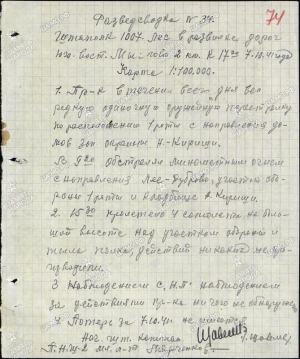 74
Разведсводка № 34.
Штаполк 1007. Лес в развилке дорог
юго. вост. Мы 2 км. К 17 00 7.10.41 года
Карта 1:100.000.
1. Пр-к в течении всего дня вел
редкую одиночную
по расположению 1 роты с направления до-
мов зап окраины Н.-Кириши.
В 9 20 обстрелял минометным огнем
с направления Лес-Дуброво, участок обо-
роны 1 роты и кладбище Н. Кириши.
2. 15 30 4 самолета на боль-
шой высоте над участком обороны и
тыла полка, действий никаких не про-
изводили.
3 Наблюдением с Н.П. наблюдением
за действиями пр-ка ничего не обнаружено
4 Потерь за 7.10.41 не
Нач. шт. капитан
П.Н.Ш-2 мл. л-т